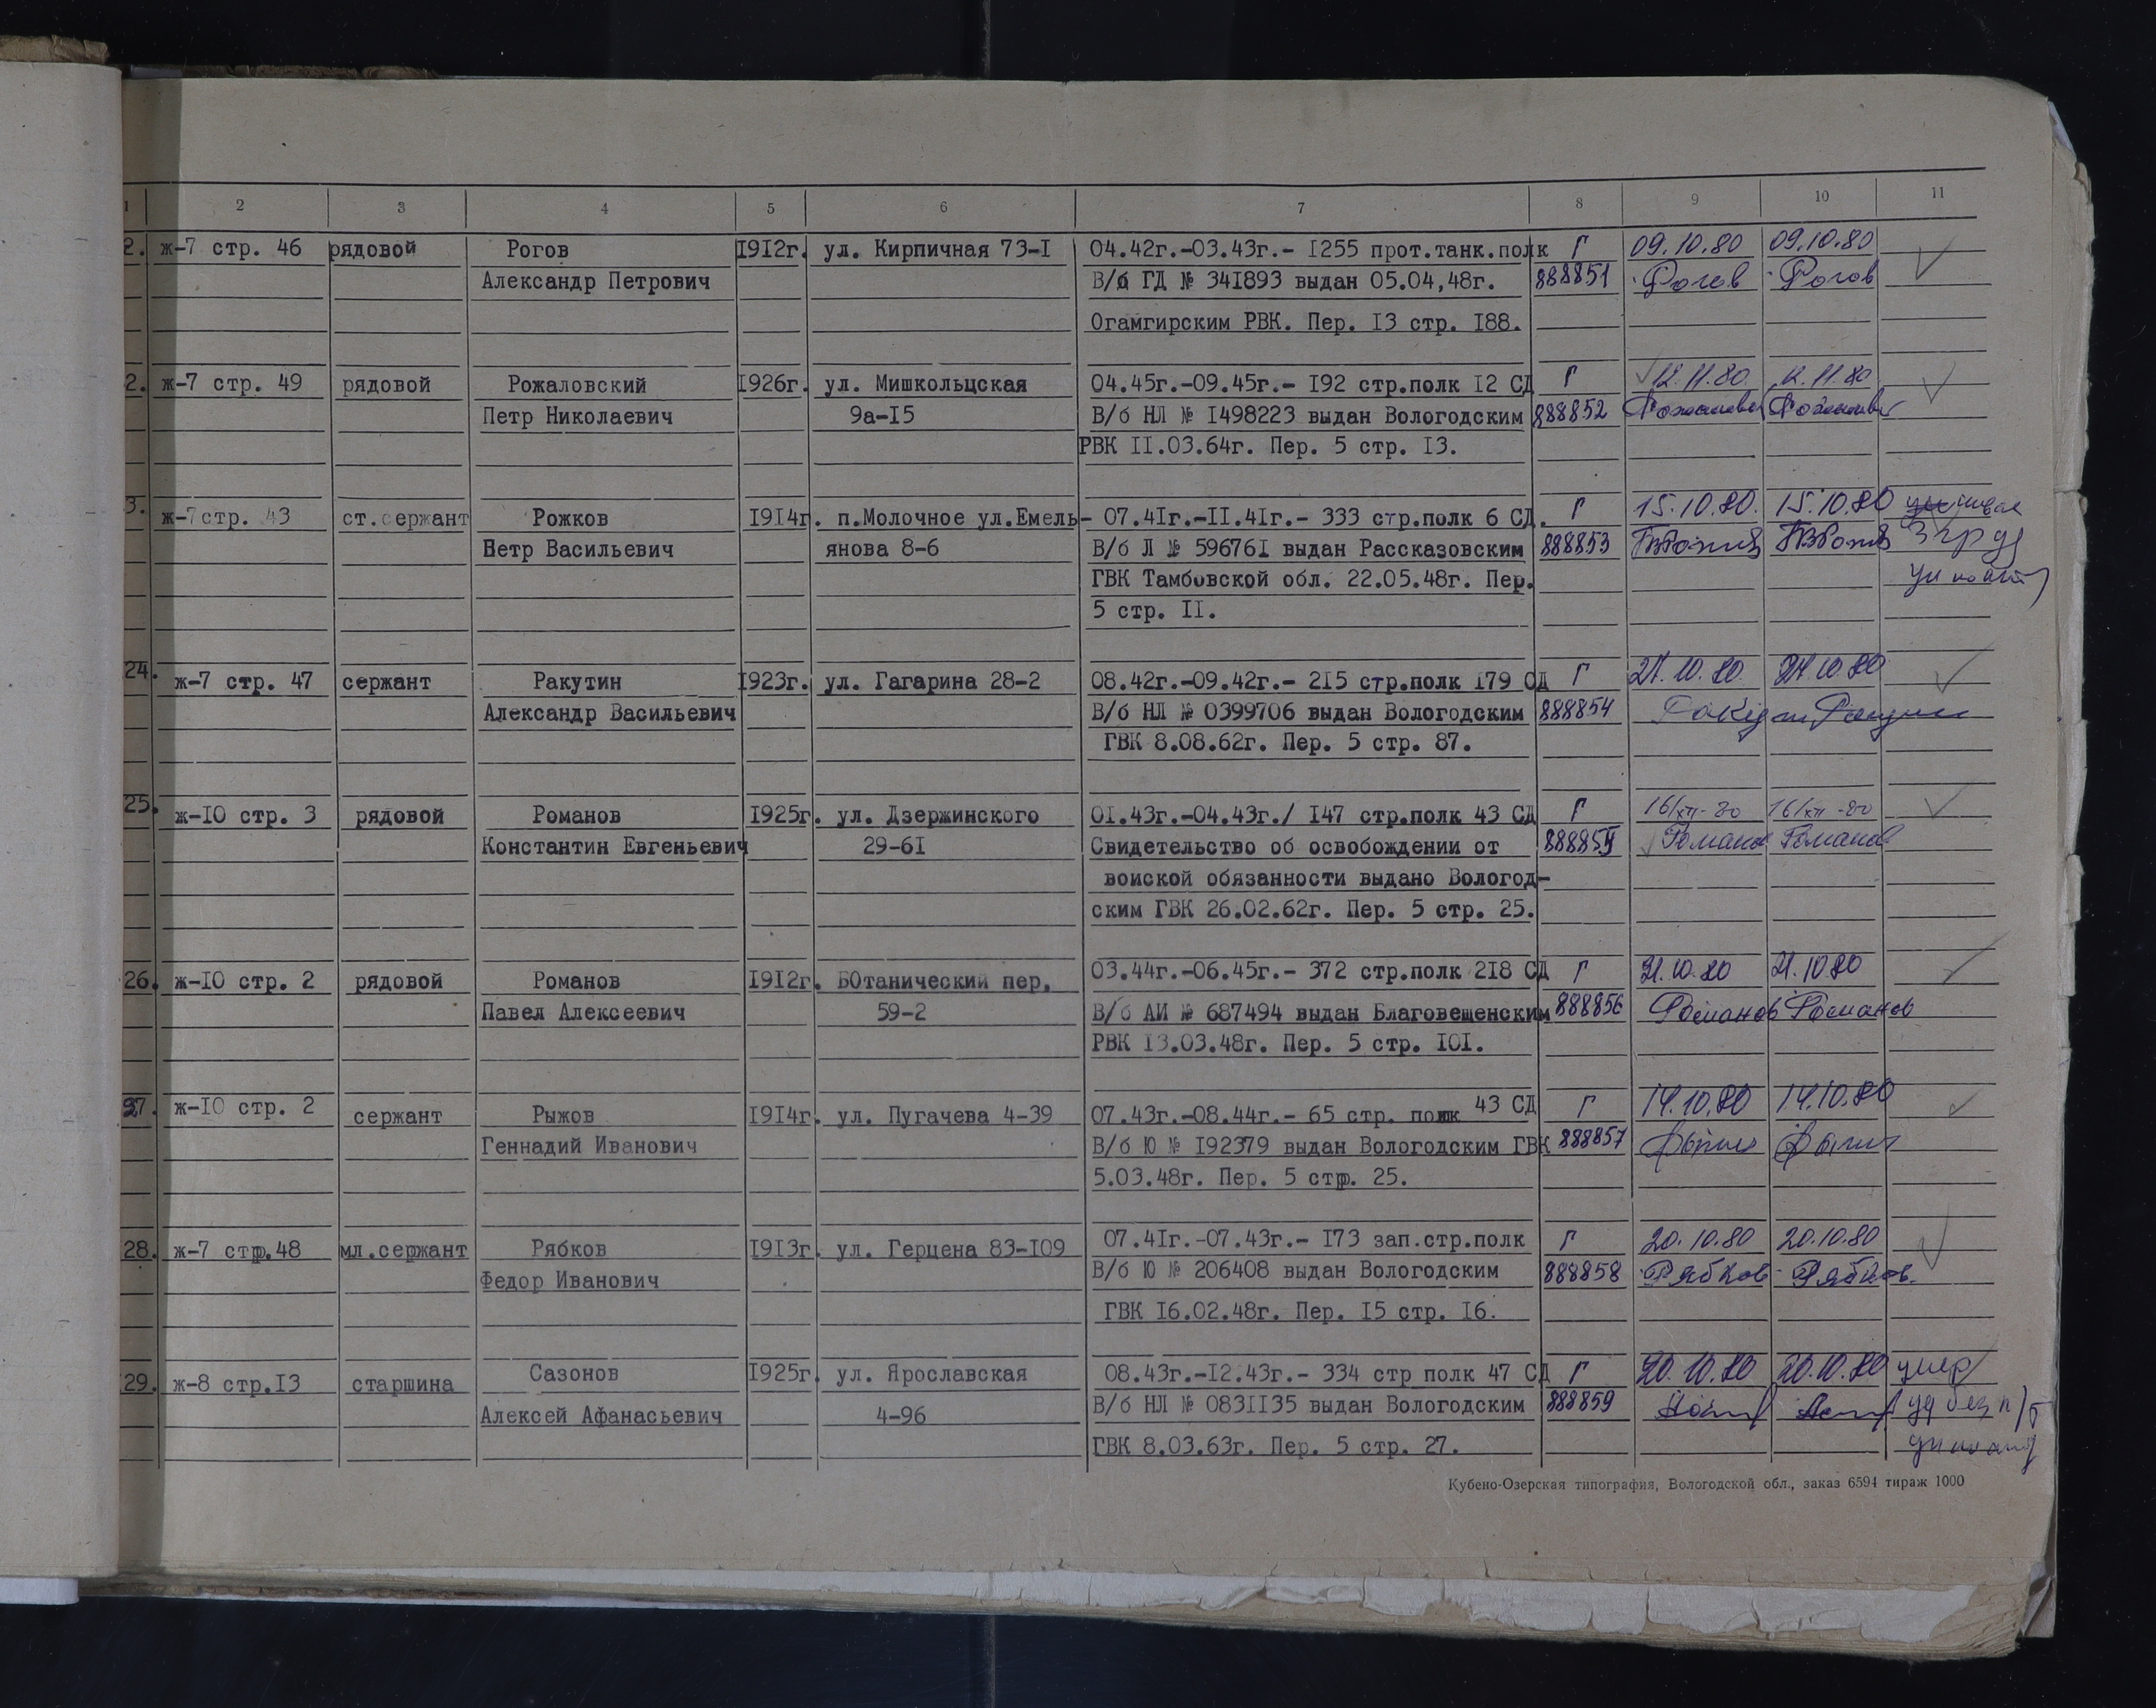 1 2 3 4 5 6 7 8 9 10 11
2. ж-7 стр. 46 рядовой Рогов 1912г. ул. Кирпичная 73-I 04.42г.-03.43г.- I255 прот.танк.полк Г 09.10.80 09.10.80
Александр Петрович В/б ГД № 34I893 выдан 05.04,48г. 888851 Рогов Рогов
Огамгирским РВК. Пер. I3 стр. I88.
2. ж-7 стр. 49 рядовой Рожаловский I926г. ул. Мишкольцская 04.45г.-09.45г.- I92 стр.полк I2 СД Г 12.11.80. 12.11.80
Петр Николаевич 9а-I5 В/б НЛ № I498223 выдан Вологодским 888852
РВК II.03.64г. Пер. 5 стр. I3.
3. ж-7стр. 43 ст.сержант Рожков I9I4г. п.Молочное ул.Емель- 07.4Iг.-II.4Iг.- 333 стр.полк 6 СД. Г 15.10.80. 15.10.80
Петр Васильевич янова 8-6 В/б Л № 59676I выдан Рассказовским 888853
ГВК Тамбовской обл. 22.05.48г. Пер.
5 стр. II.
24. ж-7 стр. 47 сержант Ракутин I923г. ул. Гагарина 28-2 08.42г.-09.42г.- 2I5 стр.полк I79 СД Г
Александр Васильевич В/б НЛ № 0399706 выдан Вологодским 888854
ГВК 8.08.62г. Пер. 5 стр. 87.
25. ж-I0 стр. 3 рядовой Романов I925г. ул. Дзержинского 0I.43г.-04.43г./ I47 стр.полк 43 СД Г 16/XII-80 16/XII-80
Константин Евгеньевич 29-6I Свидетельство об освобождении от 888855 Романов Романов
воиской обязанности выдано Вологод-
ским ГВК 26.02.62г. Пер. 5 стр. 25.
26. ж-I0 стр. 2 рядовой Романов I9I2г. БОтанический пер. 03.44г.-06.45г.- 372 стр.полк 2I8 СД Г 21.10.80 21.10 80
Павел Алексеевич 59-2 В/б АИ № 687494 выдан Благовещенским 888856 Романов Романов
РВК I3.03.48г. Пер. 5 стр. I0I.
27. ж-I0 стр. 2 сержант Рыжов I9I4г. ул. Пугачева 4-39 07.43г.-08.44г.- 65 стр. полк 43 СД Г 14.10.80 14.10.80
Геннадий Иванович В/б Ю № I92379 выдан Вологодским ГВК 888857
5.03.48г. Пер. 5 стр. 25.
28. ж-7 стр.48 мл.сержант Рябков I9I3г. ул. Герцена 83-I09 07.4Iг.-07.43г.- I73 зап.стр.полк Г 20.10.80 20.10.80
Федор Иванович В/б Ю № 206408 выдан Вологодским 888858 Рябков Рябков.
ГВК I6.02.48г. Пер. I5 стр. I6.
29. ж-8 стр.I3 старшина Сазонов I925г. ул. Ярославская 08.43г.-I2.43г.- 334 стр полк 47 СД Г 20.10.80 20.10.80 умер
Алексей Афанасьевич 4-96 В/б НЛ № 083II35 выдан Вологодским 888859 уд без
ГВК 8.03.63г. Пер. 5 стр. 27.
Кубено-Озерская типография, Вологодской обл., заказ 6594 тираж 1000